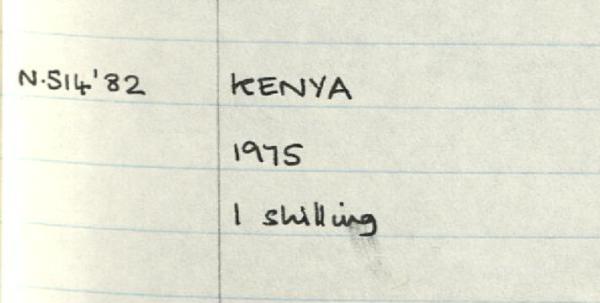 N.514'82 KENYA
1975
1 shilling